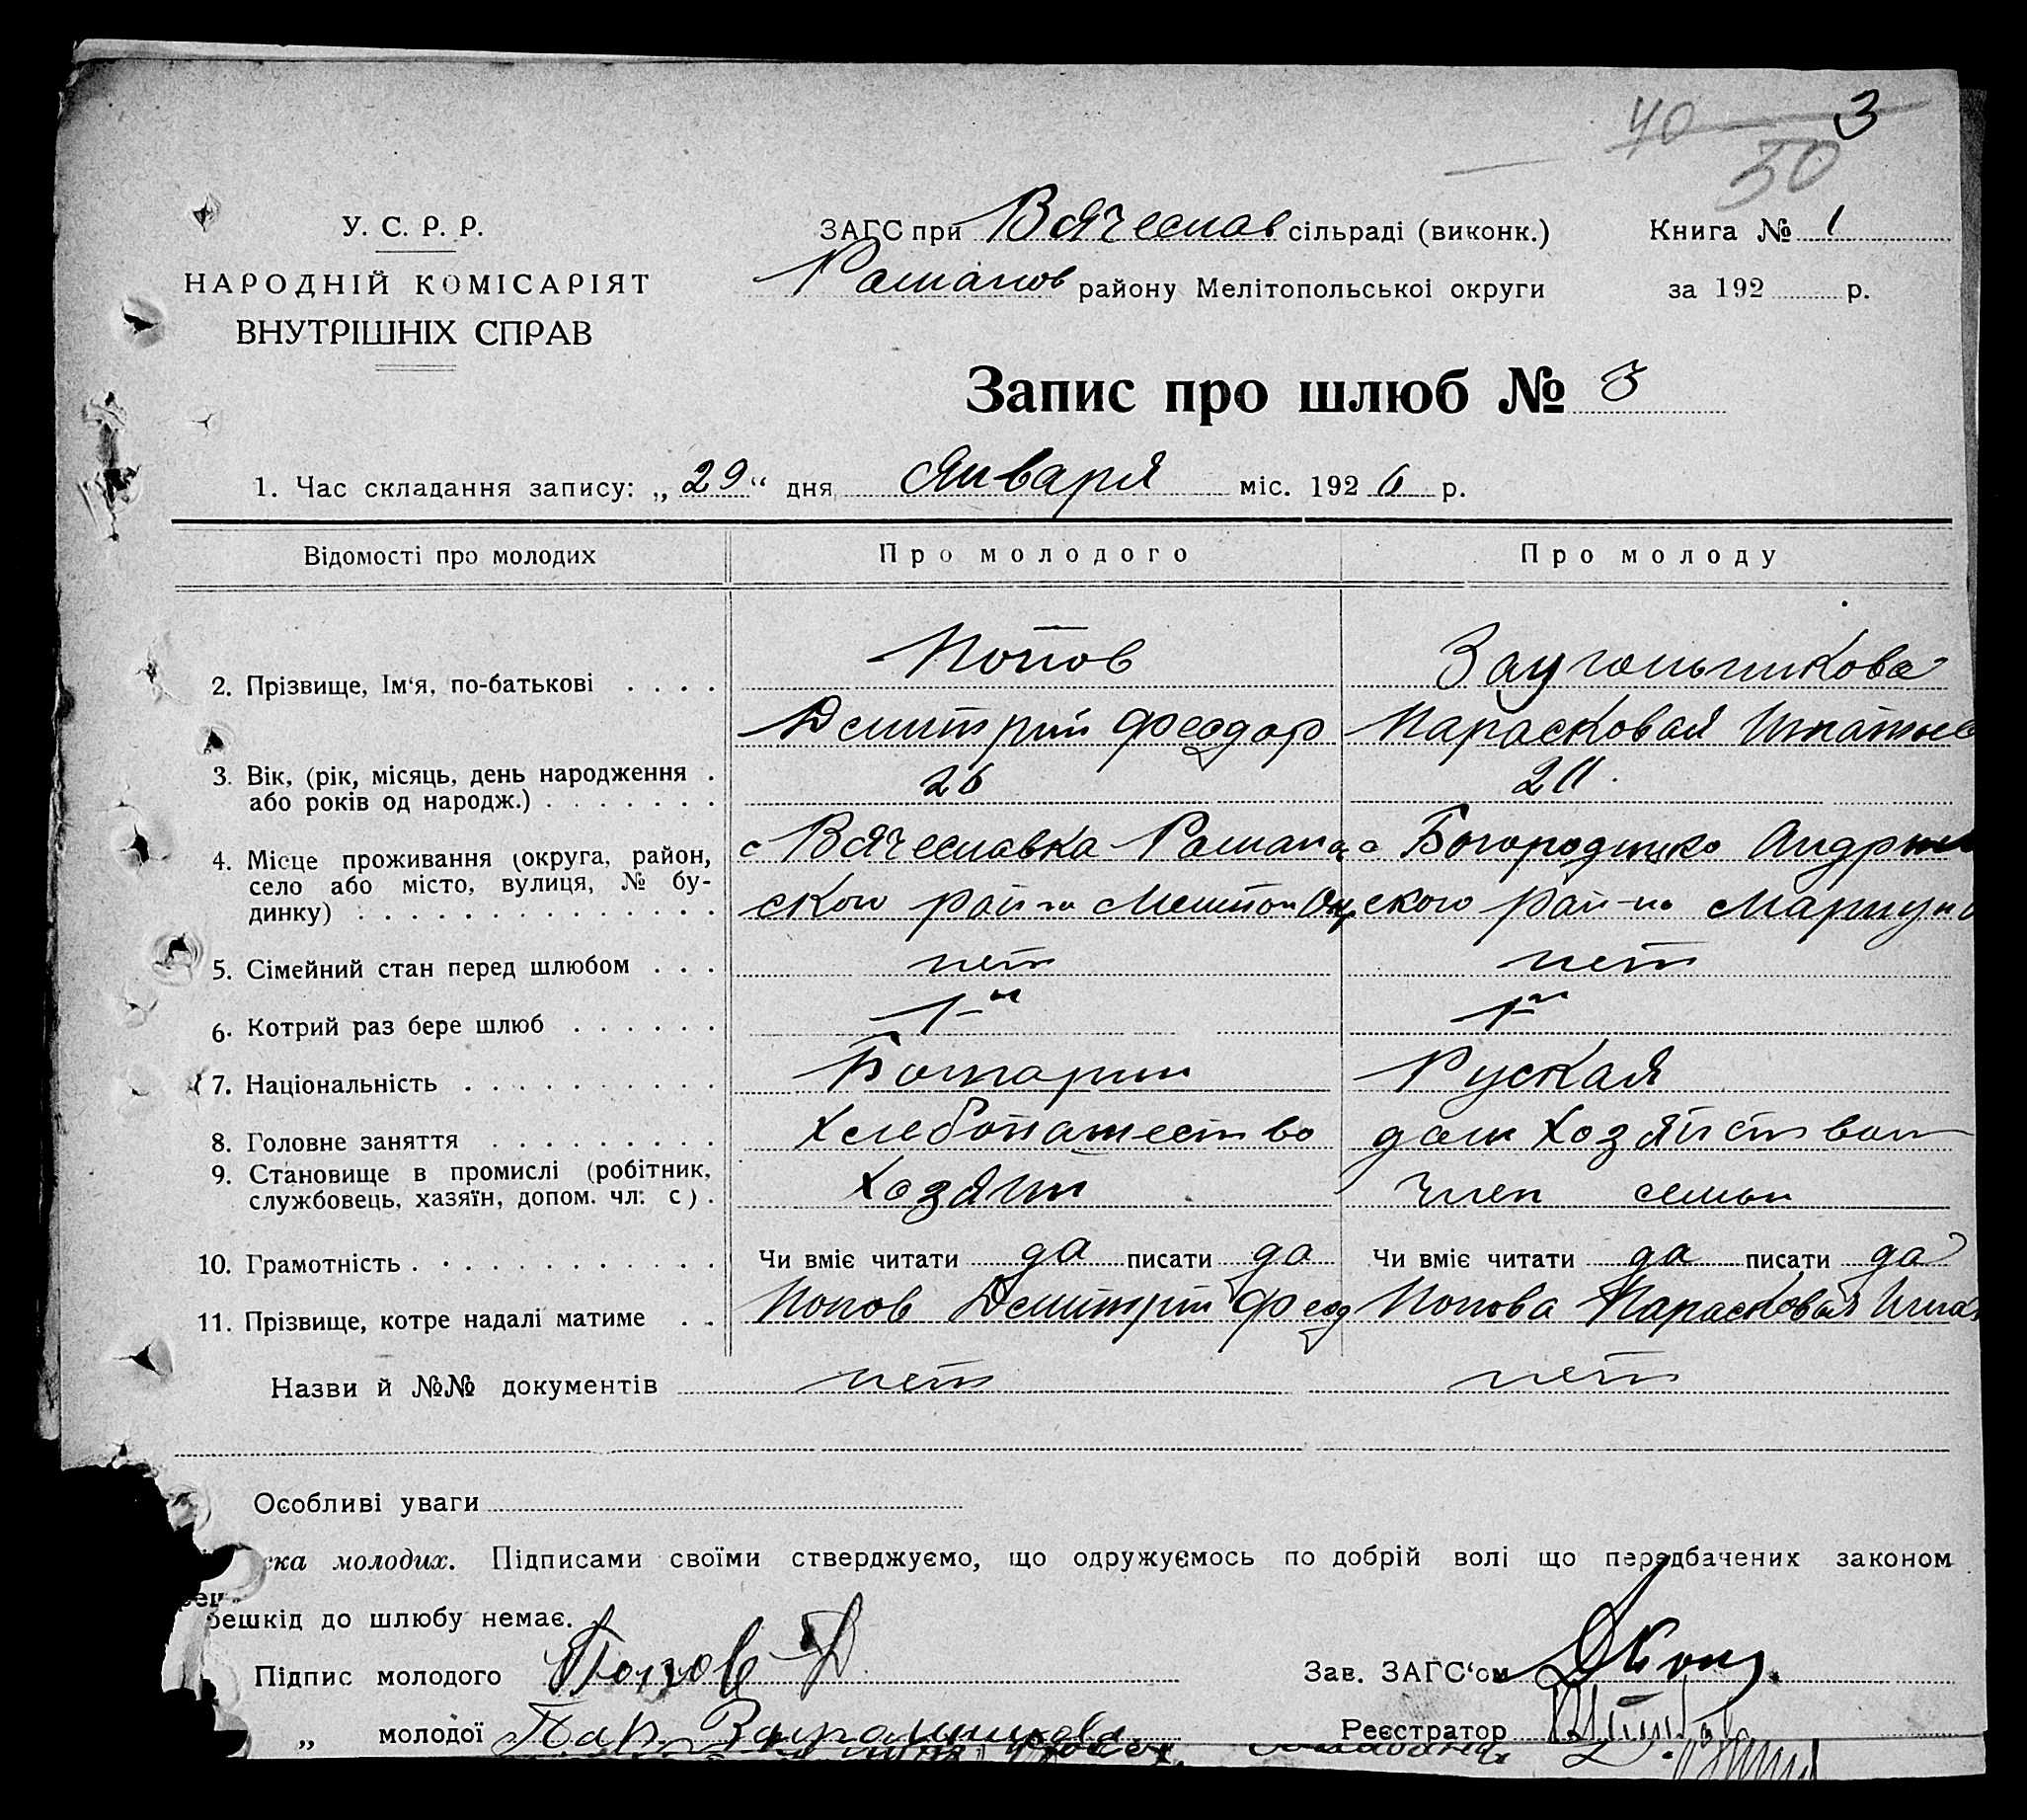 40 3
50
У. С. Р. Р.
НАРОДНІЙ КОМІСАРІЯТ
ВНУТРІШНІХ СПРАВ
ЗАГС при Вячеслав сільраді (виконк.)
Романов району Мелітопольської округи
Книга № 1
за 192 р.
Запис про шлюб № 3
1. Час складання запису: „29“ дня Января міс. 1926 р.
Відомості про молодих Про молодого Про молоду
2. Прізвище, Ім‘я, по-батькові . . . . Попов
Дмитрий Феодор Парасковая Игнатьев
3. Вік, (рік, місяць, день народження .
або років од народж.) . . . . . . . 26
4. Місце проживання (округа, район, с Вячеславка Романов с Богородицко Андреев
село або місто, вулиця, № бу-
динку) . . . . . . . . . . . . . . . ского рай-на Мелитоп Окр. ского рай-на Мариуп
5. Сімейний стан перед шлюбом . . . нет нет
6. Котрий раз бере шлюб . . . . . . 1-й 1-й
7. Національність . . . . . . . . . . Болгарин Руская
8. Головне заняття . . . . . . . . . Хлебопашество дом хозяйством
9. Становище в промислі (робітник,
службовець, хазяїн, допом. чл. с) . Хозяин Член семьи
10. Грамотність . . . . . . . . . . . . Чи вміє читати да писати да Чи вміє читати да писати да
11. Прізвище, котре надалі матиме . . Попов Дмитрий Феод Попова Парасковая Игна
Назви й №№ документів нет нет
Особливі уваги
ска молодих. Підписами своїми стверджуємо, що одружуємось по добрій волі що передбачених законом
решкід до шлюбу немає.
Підпис молодого Попов Д Зав. ЗАГС‘ом
„ молодої Пар. Реєстратор